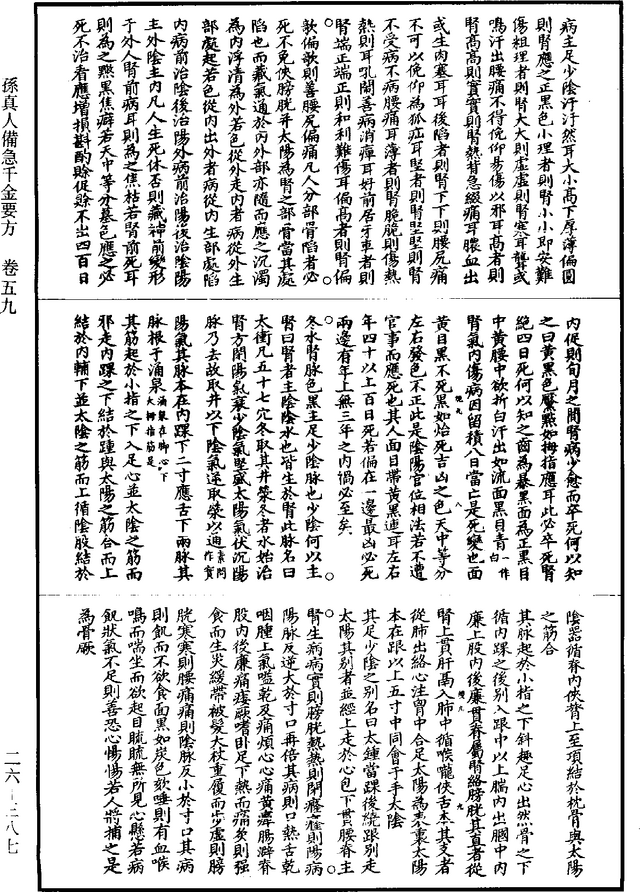 病主足少陰汙汙然耳大小高下厚薄偏圓
則腎應之正黑色小理者則腎小小即安難
傷粗理者則腎大大則虛虛則腎寒耳聾或
鳴汗出腰痛不得俛仰易傷以邪耳高者則
腎高高則實實則腎熱背急綴痛耳膿血出
或生肉塞耳耳後陷者則腎下下則腰尻痛
不可以俛仰為狐疝耳堅者則腎堅堅則腎
不受病不病腰痛耳薄者則腎脆脆則傷熱
熱則耳吼鬧善病消癉耳好前居牙車者則
腎端正端正則和利難傷耳偏高者則腎偏
欹偏欹則善腰尻偏痛凡人分部骨陷者必
死不免俠膀胱并太陽為腎之部骨當其處
陷也而藏氣通於內外部亦隨而應之沉濁
為內浮清為外若色從外走內者病從外生
部處起若色從內出外者病從內生部處陷
內病前治陰後治陽外病前治陽後治陰陽
主外陰主內凡人生死休否則藏神前變形
於外人腎前病耳則為之焦枯若腎前死耳
則為之黑焦癖若天中等分墓色應之必
死不治看應增損斟酌賒促賒不出四百日
內促則旬月之間腎病少愈而卒死何以知
之曰黃黑色黶點如拇指應耳此必卒死腎
絕四日死何以知之齒為暴黑面為正黑目
中黃腰中欲折白汗出如流面黑目青一作白
腎氣內傷病因留積八日當亡是死變也面
黃目黑不死黑如炲死吉凶之色天中等分
左右發色不正此是陰陽官位相法若不遭
官事而應死也其人面目帶黃黑連耳左右
年四十以上百日死若偏在一邊最凶必死
兩邊有年上無三年之內禍必至矣
冬水腎脉色黑主足少陰脉也少陰何以主
腎曰腎者主陰陰水也皆生於腎此脉名曰
太衝凡五十七穴冬取其井滎冬者水始治
腎方閉陽氣衰少陰氣堅盛太陽氣伏沉陽
脉乃去故取井以下陰氣逆取滎以通素問作實
陽氣其脉本在內踝下二寸應舌下兩脉其
脉根于涌泉涌泉在脚心下大拇指筋是
其筋起於小指之下入足心並太陰之筋而
邪走內踝之下結於踵與太陽之筋合而上
結於內輔下並太陰之筋而上循陰股結於
陰器循脊內俠膂上至項結於枕骨與太陽
之筋合
其脉起於小指之下斜趣足心出然骨之下
循內踝之後別入跟中以上腨內出膕中內
廉上股內後廉貫脊屬腎絡膀胱其直者從
腎上貫肝鬲入肺中循喉嚨俠舌本其支者
從肺出絡心注胷中合足太陽為表裏太陽
本在跟以上五寸中同會于手太陰
其足少陰之別名曰太鍾當踝後繞跟別走
太陽其別者並經上走於心包下貫腰脊主
腎生病病實則膀胱熱熱則閉癃癃則陽病
陽脉反逆大於寸口再倍其病則口熱舌乾
咽腫上氣嗌乾及痛煩心心痛黃癉腸澼脊
股內後廉痛痿厥嗜卧足下熱而痛灸則強
食而生灾緩帶被髮大杖重履而步虛則膀
胱寒寒則腰痛痛則陰脉反小於寸口其病
則飢而不欲食面黑如炭色欬唾則有血喉
鳴而喘坐而欲起目䀮䀮無所見心懸若病
飢狀氣不足則善恐心惕惕若人將捕之是
為骨厥
孫真人備急千金要方　卷五九
二六－三八七